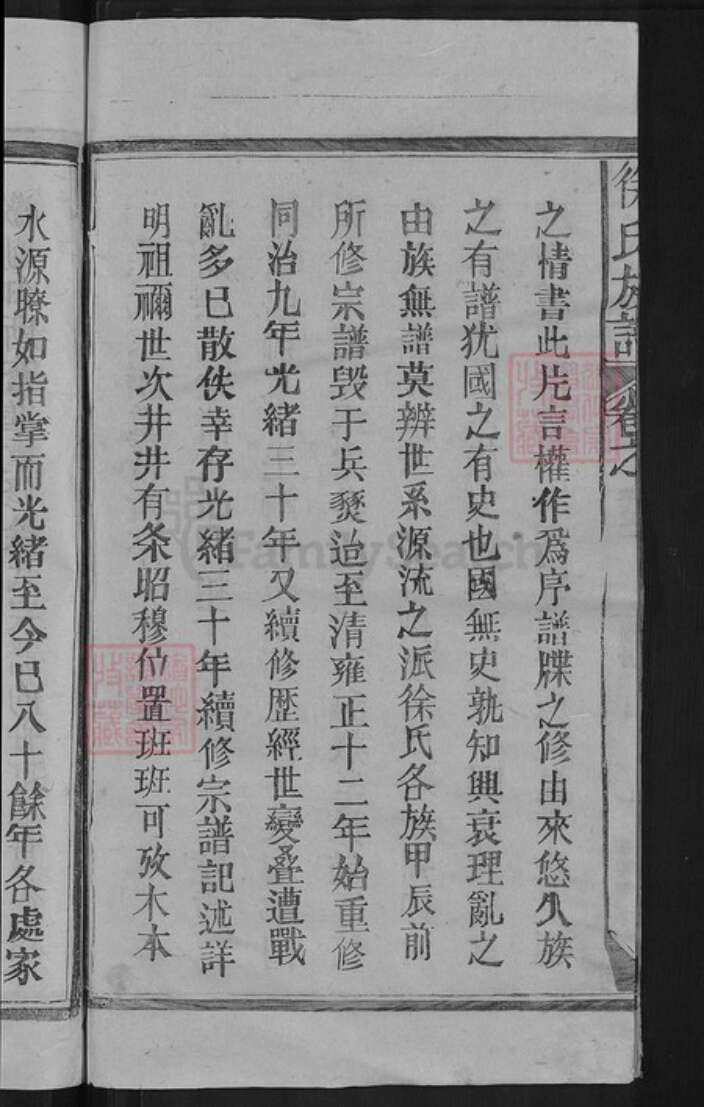 徐氏族譜
卷之
之情書此片言權作爲序譜牒之修由來悠久族
之有譜犹國之有史也國無史孰知興衰理亂之
由族無譜莫辨世系源流之派徐氏各族甲辰前
所修宗譜毁于兵燹迨至清雍正十二年始重修
同治九年光緒三十年又續修歷經世變叠遭戰
亂多已散佚幸存光緒三十年續修宗譜記述詳
明祖禰世次井井有条昭穆位置班班可攷木本
水源暸如指掌而光緒至今已八十餘年各處家
FamilySearch